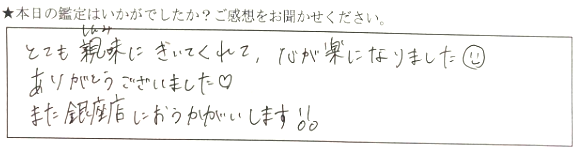 ★本日の鑑定はいかがでしたか？ご感想をお聞かせください。
しんみ
とても親味にきいてくれて、心が楽になりました☺
ありがとうございました♡
また銀座店におうかがいします!!